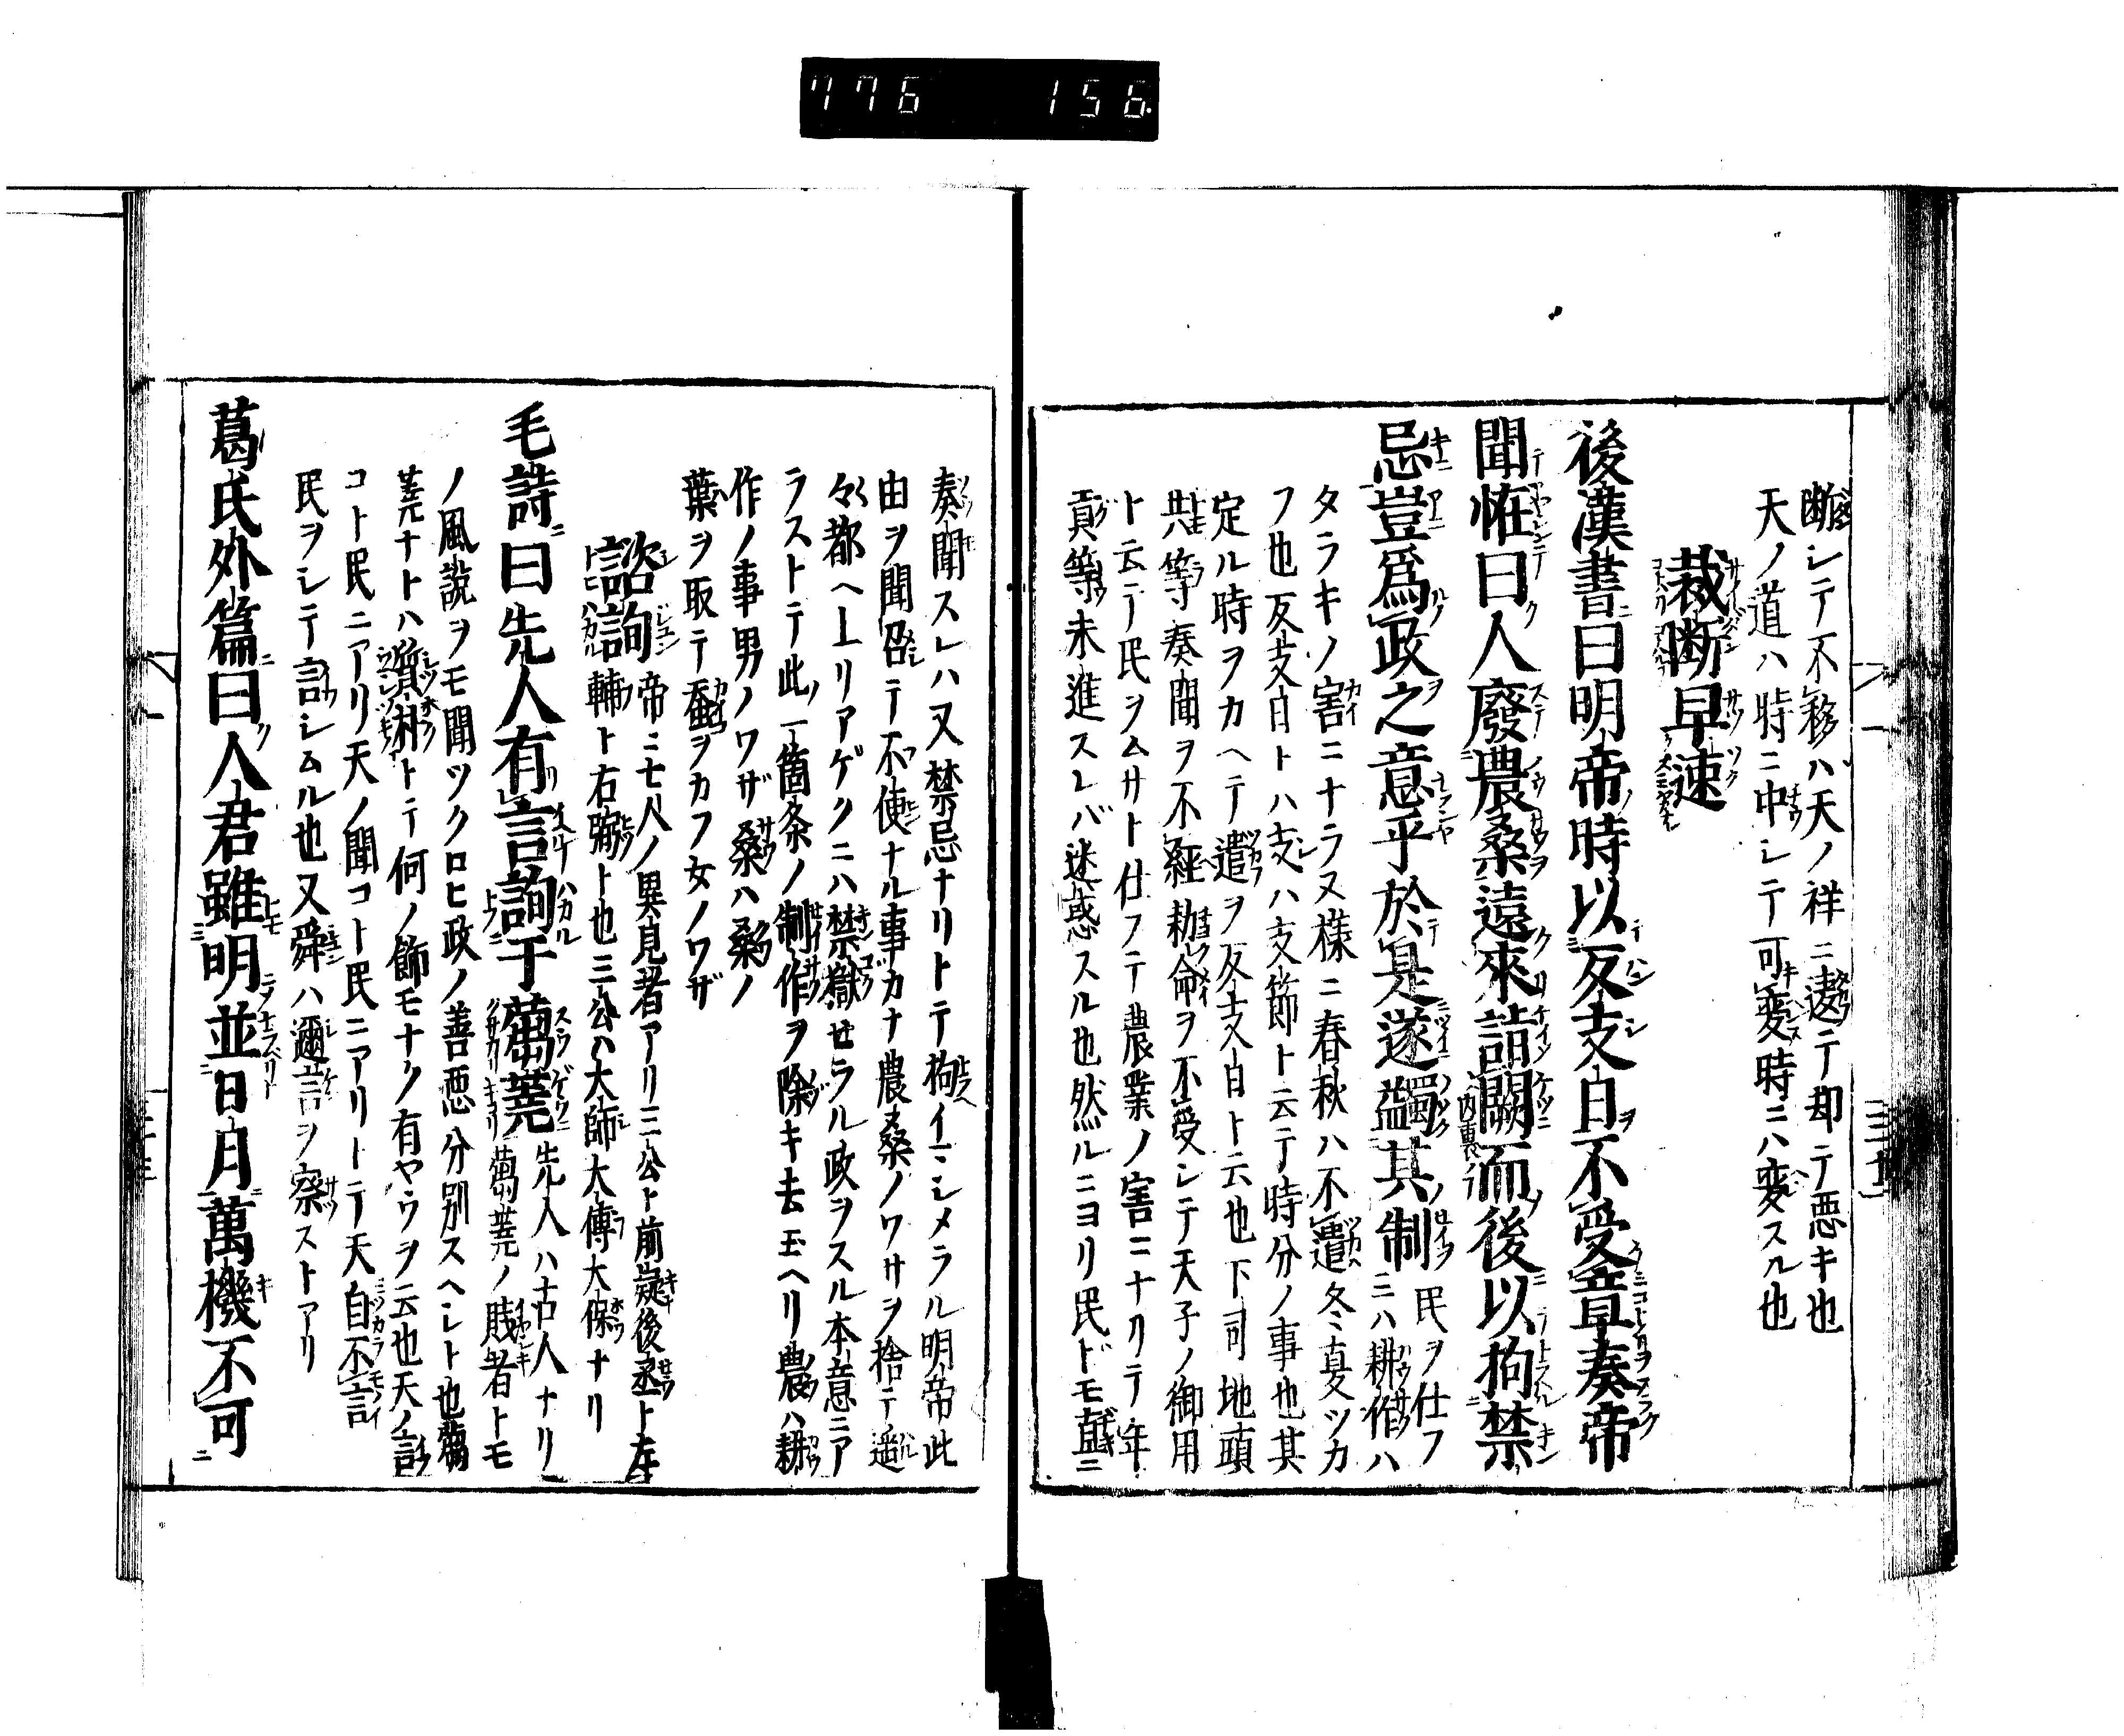 776 156.
断シテ不移ハ天ノ祥ニ逆テ却テ悪キ也
天ノ道ハ時ニ中シテ可変時ニハ変スル也
裁断早速
後漢書曰明帝時以反支日不受章奏帝
聞恠曰人廢農桑遠來詣闕而後以拘禁
忌豈爲政之意乎於是遂蠲其制 民ヲ仕フニハ耕作ハ
タラキノ害ニナラヌ様ニ春秋ハ不遣冬夏ツカ
フ也反支日トハ支ハ支節ト云テ時分ノ事也其
定ル時ヲカヘテ遣ヲ反支日ト云也下司地頭
共等奏聞ヲ不経勅命ヲ不受シテ天子ノ御用
ト云テ民ヲムサト仕フテ農業ノ害ニナリテ年
貢等未進スレバ迷惑スル也然ルニヨリ民ドモ直ニ
奏聞スレハ又禁忌ナリトテ拘イマシメラル明帝此
由ヲ聞召テ不便ナル事カナ農桑ノワサヲ捨テ遥
々都ヘ上リアゲクニハ禁獄せラル政ヲスル本意ニア
ラストテ此一箇条ノ制作ヲ除キ去玉ヘリ農ハ耕
作ノ事男ノワザ桑ハ桑ノ
葉ヲ取テ蚕ヲカフ女ノワザ
諮詢 帝ニ七人ノ異見者アリ三公ト前疑後丞ト左
輔ト右弼ト也三公ハ大師大傅大保ナリ
毛詩曰先人有言詢于蒭蕘 先人ハ古人ナリ
蒭蕘ノ賎者トモ
ノ風説ヲモ聞ツクロヒ政ノ善悪分別スヘシト也蒭
蕘ナトハ質朴トテ何ノ飾モナク有ヤウヲ云也天ノ
コト民ニアリ天ノ聞コト民ニアリトテ天自不言
民ヲシテ言シムル也又舜ハ邇言ヲ察ストアリ
葛氏外篇曰人君雖明並日月萬機不可